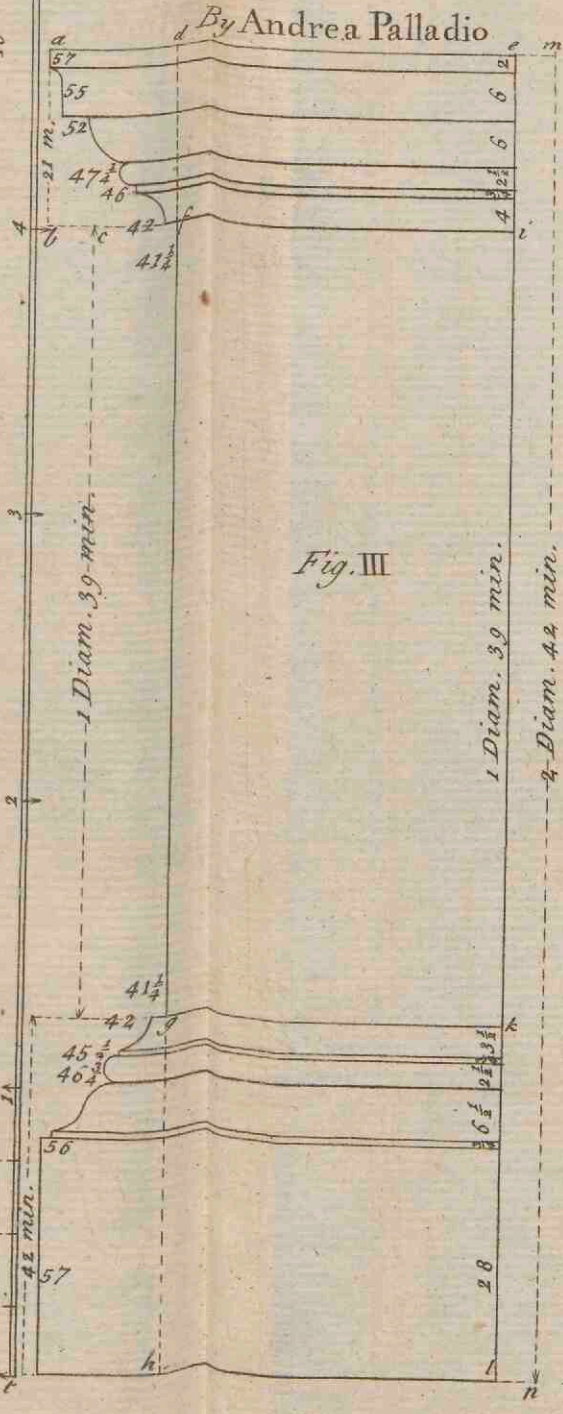 By Andrea Palladio
a
d
e
m
57
2
55
6
52
6
21 m.
47 1/4
2 1/2
46
4
b
c
42
f
4
i
41 1/4
3
1 Diam. 39 min.
Fig. III
1 Diam. 39 min.
2 Diam. 42 min.
2
41 1/4
42
g
k
45 1/2
3 1/2
46 3/4
2 1/2
1
6 1/2
56
42 min.
57
28
t
h
l
n